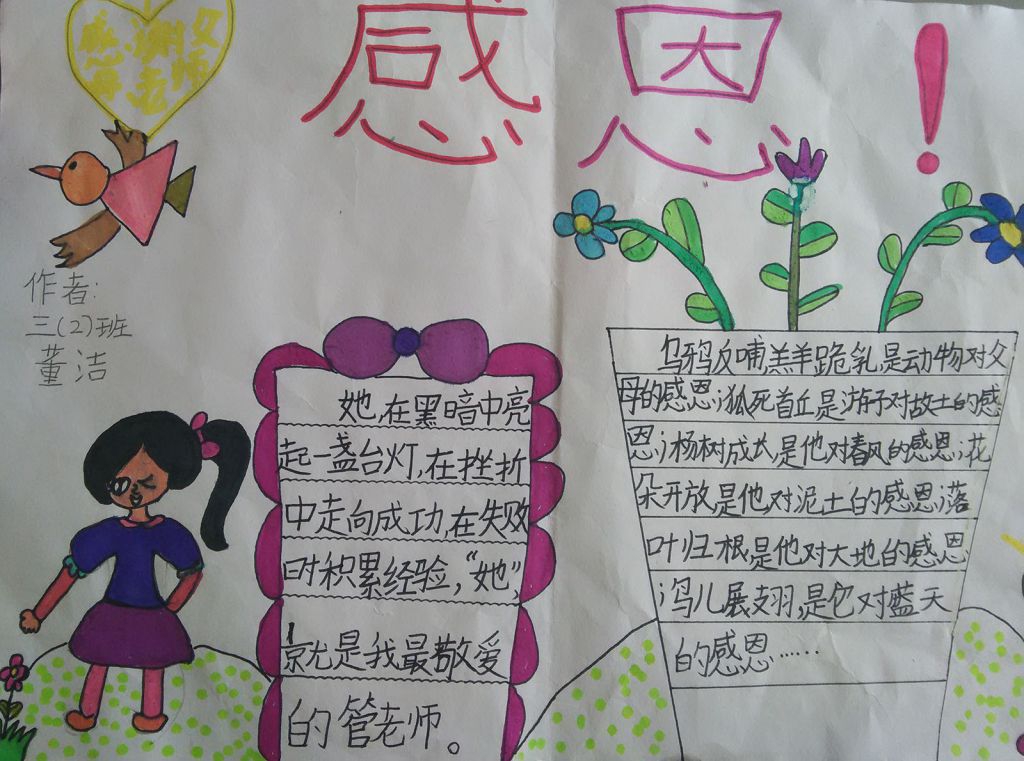 感恩！
感谢父
母老师
作者：
三(2)班
董洁
她，在黑暗中亮
起一盏台灯，在挫折
中走向成功，在失败
时积累经验，“她”，
就是我最敬爱
的管老师。
乌鸦反哺，羔羊跪乳，是动物对父
母的感恩；狐死首丘是游子对故土的感
恩；杨树成长，是他对春风的感恩；花
朵开放是他对泥土的感恩；落
叶归根，是他对大地的感恩
鸟儿展翅，是它对蓝天
的感恩……